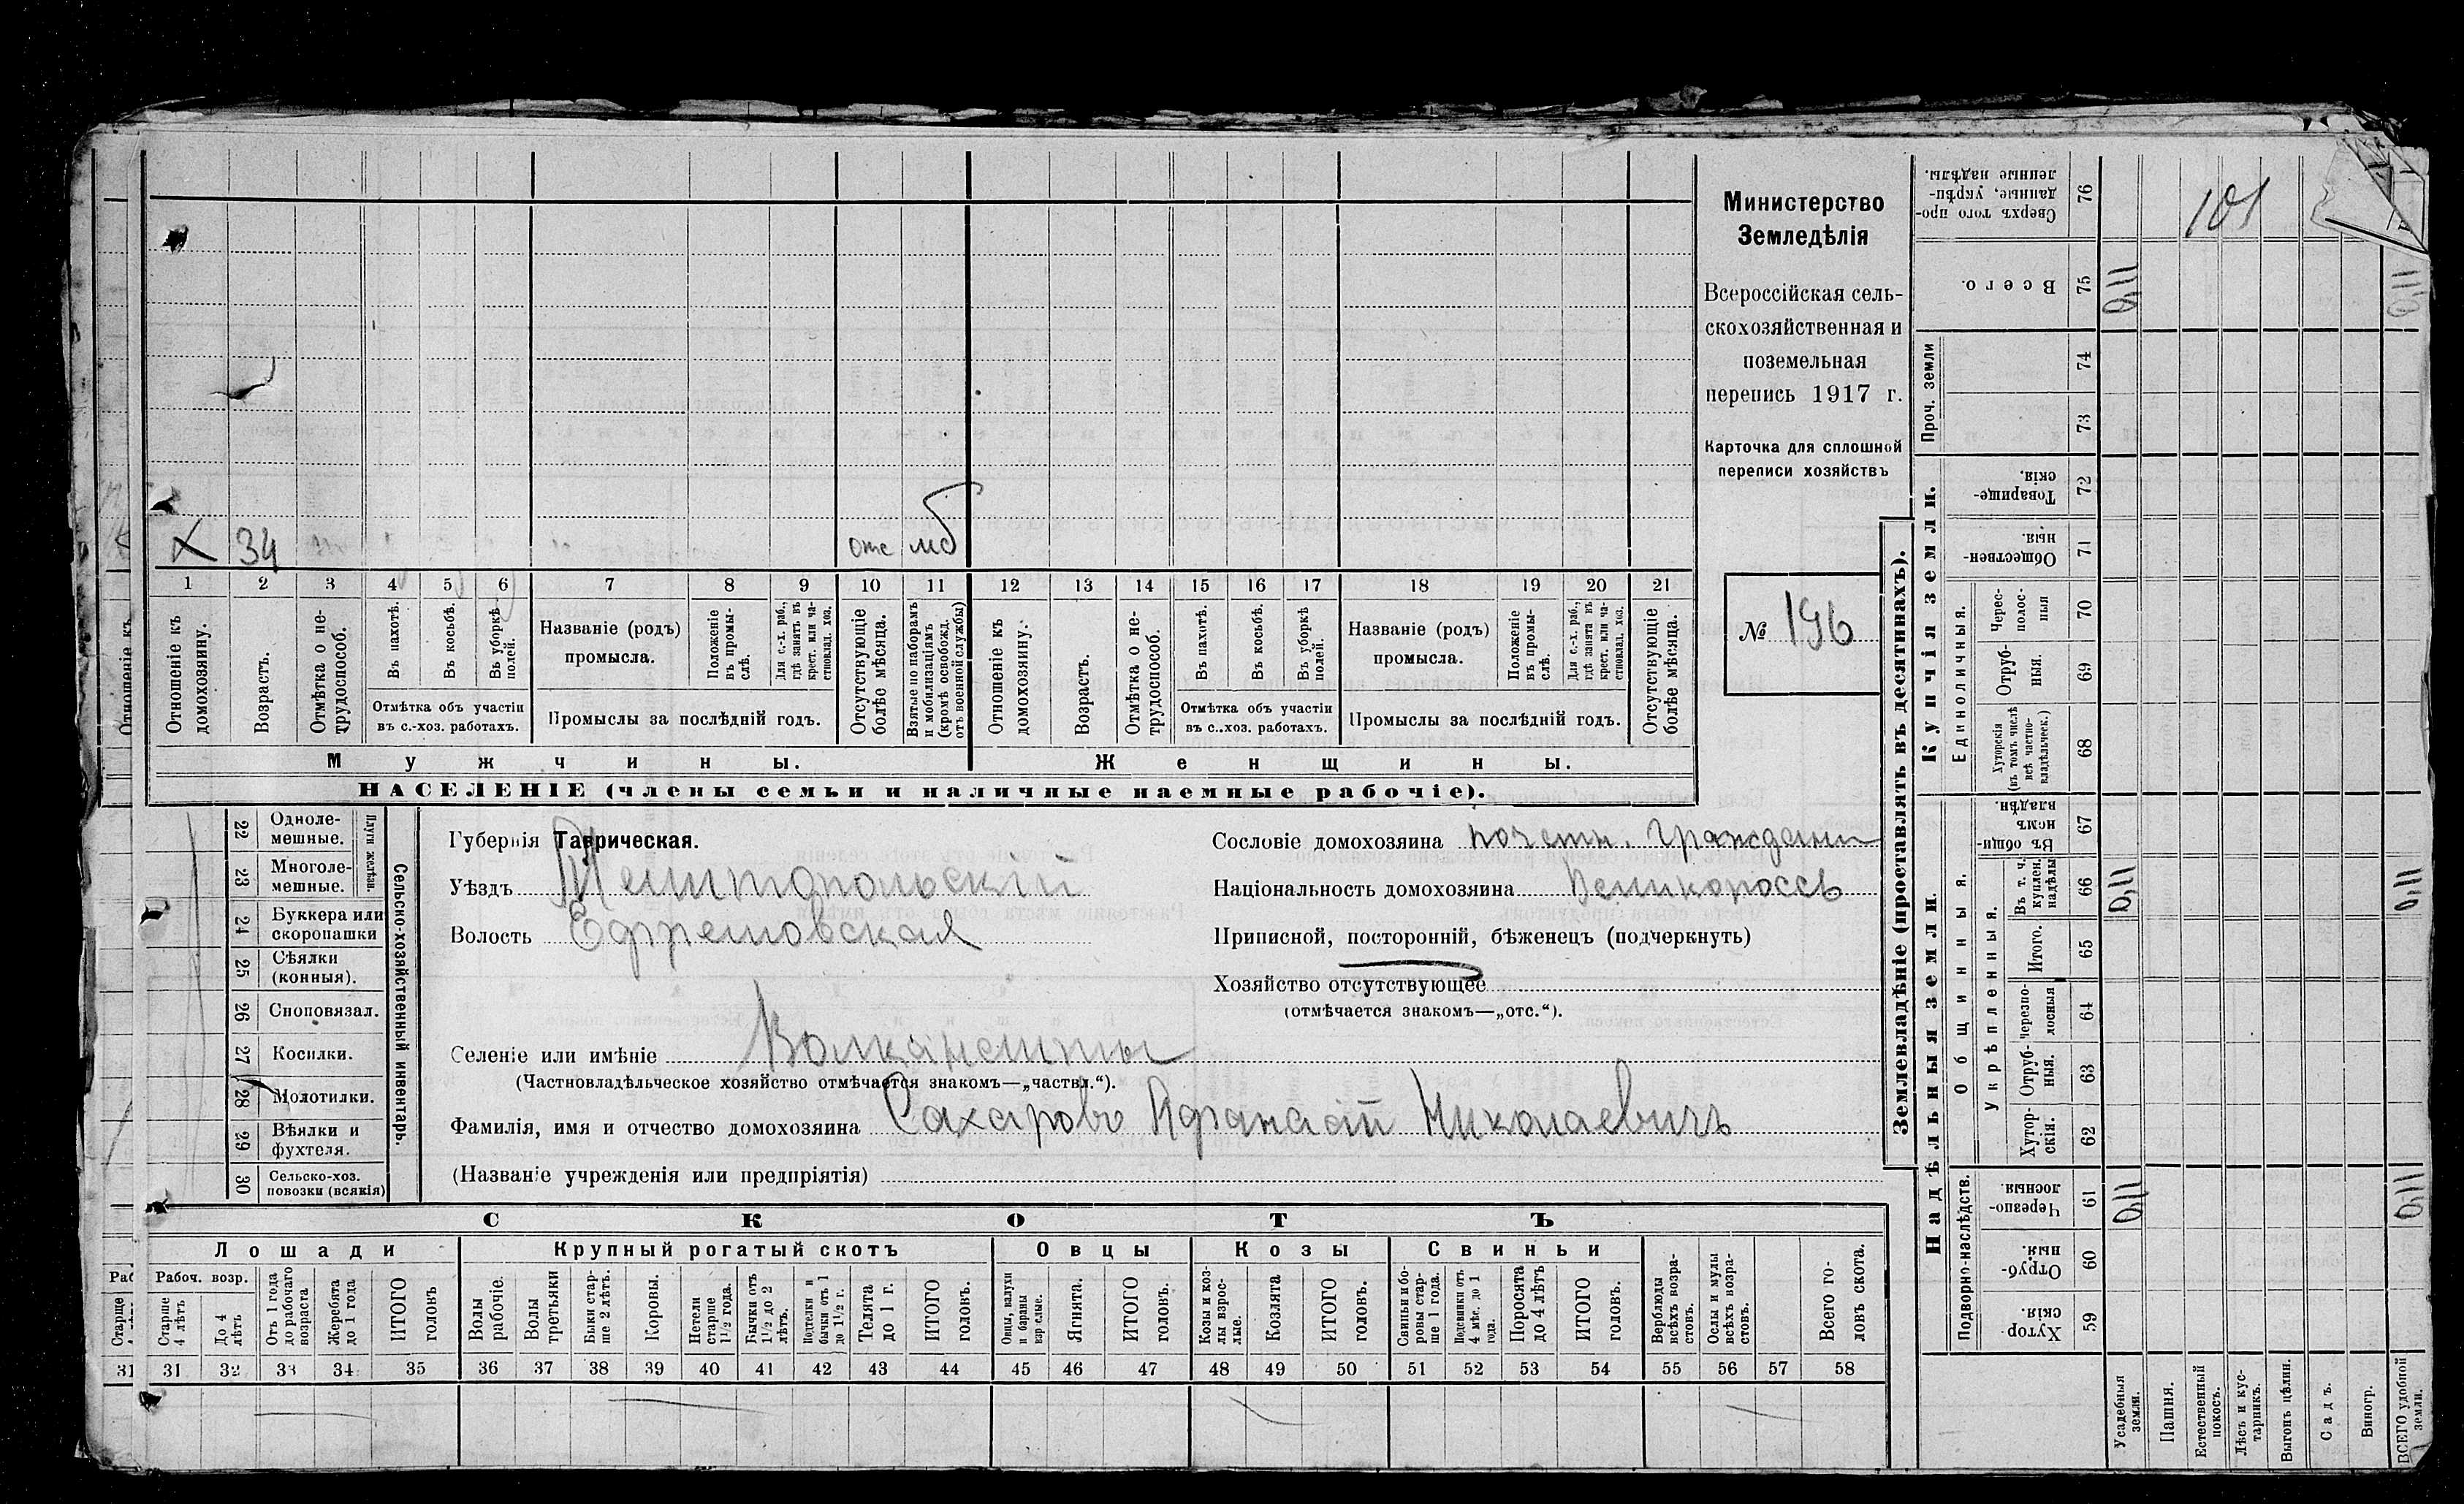 Министерство
Земледѣлія
Всероссійская сель-
скохозяйственная и
поземельная
перепись 1917 г.
Карточка для сплошной
переписи хозяйствъ
№ 196
Х 34 отс мб
1 2 3 4 5 6 7 8 9 10 11 12 13 14 15 16 17 18 19 20 21
Отношеніе къ домохозяину.
Возрастъ.
Отмѣтка о не-трудоспособ.
Въ пахотѣ.
Въ косьбѣ.
Въ уборкѣ полей.
Отмѣтка объ участіи
въ с.-хоз. работахъ.
Названіе (родъ)
промысла.
Положеніе въ промы-слѣ.
Для с.-х. раб., гдѣ занятъ въ крест. или ча-стновлад. хоз.
Промыслы за послѣдній годъ.
Отсутствующіе болѣе мѣсяца.
Взятые по наборамъ и мобилизаціямъ (кромѣ освобожд. отъ военной службы)
Отношеніе къ домохозяину.
Возрастъ.
Отмѣтка о не-трудоспособ.
Въ пахотѣ.
Въ косьбѣ.
Въ уборкѣ полей.
Отмѣтка объ участіи
въ с.-хоз. работахъ.
Названіе (родъ)
промысла.
Положеніе въ промы-слѣ.
Для с.-х. раб., гдѣ занята въ крест. или ча-стновлад. хоз.
Промыслы за послѣдній годъ.
Отсутствующіе болѣе мѣсяца.
Мужчины. Женщины.
НАСЕЛЕНІЕ (члены семьи и наличные наемные рабочіе).
Сельско-хозяйственный инвентарь.
Плуги желѣзн.
22 Одноле-мешные.
23 Многоле-мешные.
24 Буккера или скоропашки
25 Сѣялки (конныя).
26 Сноповязал.
27 Косилки.
28 Молотилки.
29 Вѣялки и фухтеля.
30 Сельско-хоз. повозки (всякія)
Губернія Таврическая.
Уѣздъ Мелитопольскій
Волость Ефремовская
Сословіе домохозяина почетн. гражданин
Національность домохозяина Великороссъ
Приписной, посторонній, бѣженецъ (подчеркнуть)
Хозяйство отсутствующее
(отмѣчается знакомъ—„отс.“).
Селеніе или имѣніе
(Частновладѣльческое хозяйство отмѣчается знакомъ—„частвл.“).
Фамилія, имя и отчество домохозяина Сахаровъ Афанасій Николаевичъ
(Названіе учрежденія или предпріятія)
СКОТЪ
Лошади Крупный рогатый скотъ Овцы Козы Свиньи
Рабоч. возр.
Старше 4 лѣтъ
До 4 лѣтъ
Отъ 1 года до рабочаго возраста
Жеребята до 1 года
ИТОГО головъ
Волы рабочіе.
Волы третьяки
Быки стар-ше 2 лѣтъ.
Коровы.
Нетели старше 1½ года.
Бычки отъ 1½ до 2 лѣтъ.
Подтелки и бычки отъ 1 до 1½ г.
Телята до 1 г.
ИТОГО головъ.
Овцы, валухи и бараны взрослые.
Ягнята.
ИТОГО головъ.
Козы и коз-лы взрос-лые.
Козлята
ИТОГО головъ.
Свиньи и бо-ровы стар-ше 1 года.
Подсвинки отъ 4 мѣс. до 1 года.
Поросята до 4 лѣтъ
ИТОГО головъ.
Верблюды всѣхъ возра-стовъ.
Ослы и мулы всѣхъ возра-стовъ.
Всего го-ловъ скота.
31 32 33 34 35 36 37 38 39 40 41 42 43 44 45 46 47 48 49 50 51 52 53 54 55 56 57 58
Землевладѣніе (проставлять въ десятинахъ).
Надѣльныя земли. Купчія земли. Проч. земли
Подворно-наслѣдств.
Общинныя.
Укрѣпленныя.
Единоличныя.
59 Хутор-скія.
60 Отруб-ныя.
61 Черезпо-лосныя. 0,11 0,11
62 Хутор-скія.
63 Отруб-ныя.
64 Черезпо-лосныя
65 Итого.
66 Въ т. ч. куплен. надѣлы 0,11 0,11
67 Въ общи-номъ владѣн.
68 Хуторскія (въ томъ числѣ всѣ частно-владѣльческ.)
69 Отруб-ныя.
70 Черес-полос-ныя
71 Обществен-ныя.
72 Товарище-скія.
73
74
75 Всего. 0,11 0,11
76 Сверхъ того про-данные, укрѣп-ленные надѣлы.
101
Усадебныя земли.
Пашня.
Естественный покосъ.
Лѣсъ и кус-тарникъ.
Выгонъ цѣлин.
Садъ.
Виногр.
ВСЕГО удобной земли.